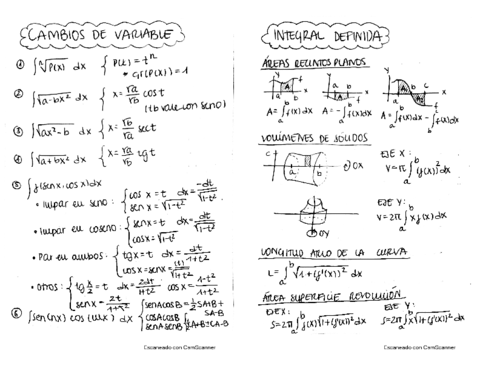 CAMBIOS DE VARIABLE
① ∫ ⁿ√P(x) dx { P(t) = tⁿ
* Gr(P(x)) = 1
② ∫ √a-bx² dx { x = √a/√b cos t
(tb vale con seno)
③ ∫ √ax²-b dx { x = √b/√a sec t
④ ∫ √a+bx² dx { x = √a/√b tg t
⑤ ∫ f(sen x, cos x) dx
• Impar en seno: { cos x = t dx = -dt/√1-t²
sen x = √1-t²
• Impar en coseno: { sen x = t dx = dt/√1-t²
cos x = √1-t²
• Par en ambos: { tg x = t dx = dt/1+t²
• otros: { tg x/2 = t dx = 2dt/1+t² cos x = 1-t²/1+t²
sen x = 2t/1+t²
⑥ ∫ sen(nx) cos(mx) dx { senA cosB = ½ SA+B +
SA-B
cosA cosB
senA senB
Escaneado con CamScanner
INTEGRAL DEFINIDA
ÁREAS RECINTOS PLANOS
y f a b x
a b x f
y a b c x f
A = ∫ₐᵇ f(x) dx A = -∫ₐᵇ f(x) dx A = ∫ₐᵇ f(x) dx - ∫ f(x) dx
VOLÚMENES DE SÓLIDOS
a b OX
EJE X:
V = π ∫ₐᵇ (f(x))² dx
OY
EJE Y:
V = 2π ∫ₐᵇ x f(x) dx
LONGITUD ARCO DE LA CURVA
L = ∫ₐᵇ √1+(f'(x))² dx
ÁREA SUPERFICIE REVOLUCIÓN
EJE X: EJE Y:
S = 2π ∫ₐᵇ f(x) √1+(f'(x))² dx S = 2π ∫ₐᵇ x √1+(f'(x))² dx
Escaneado con CamScanner